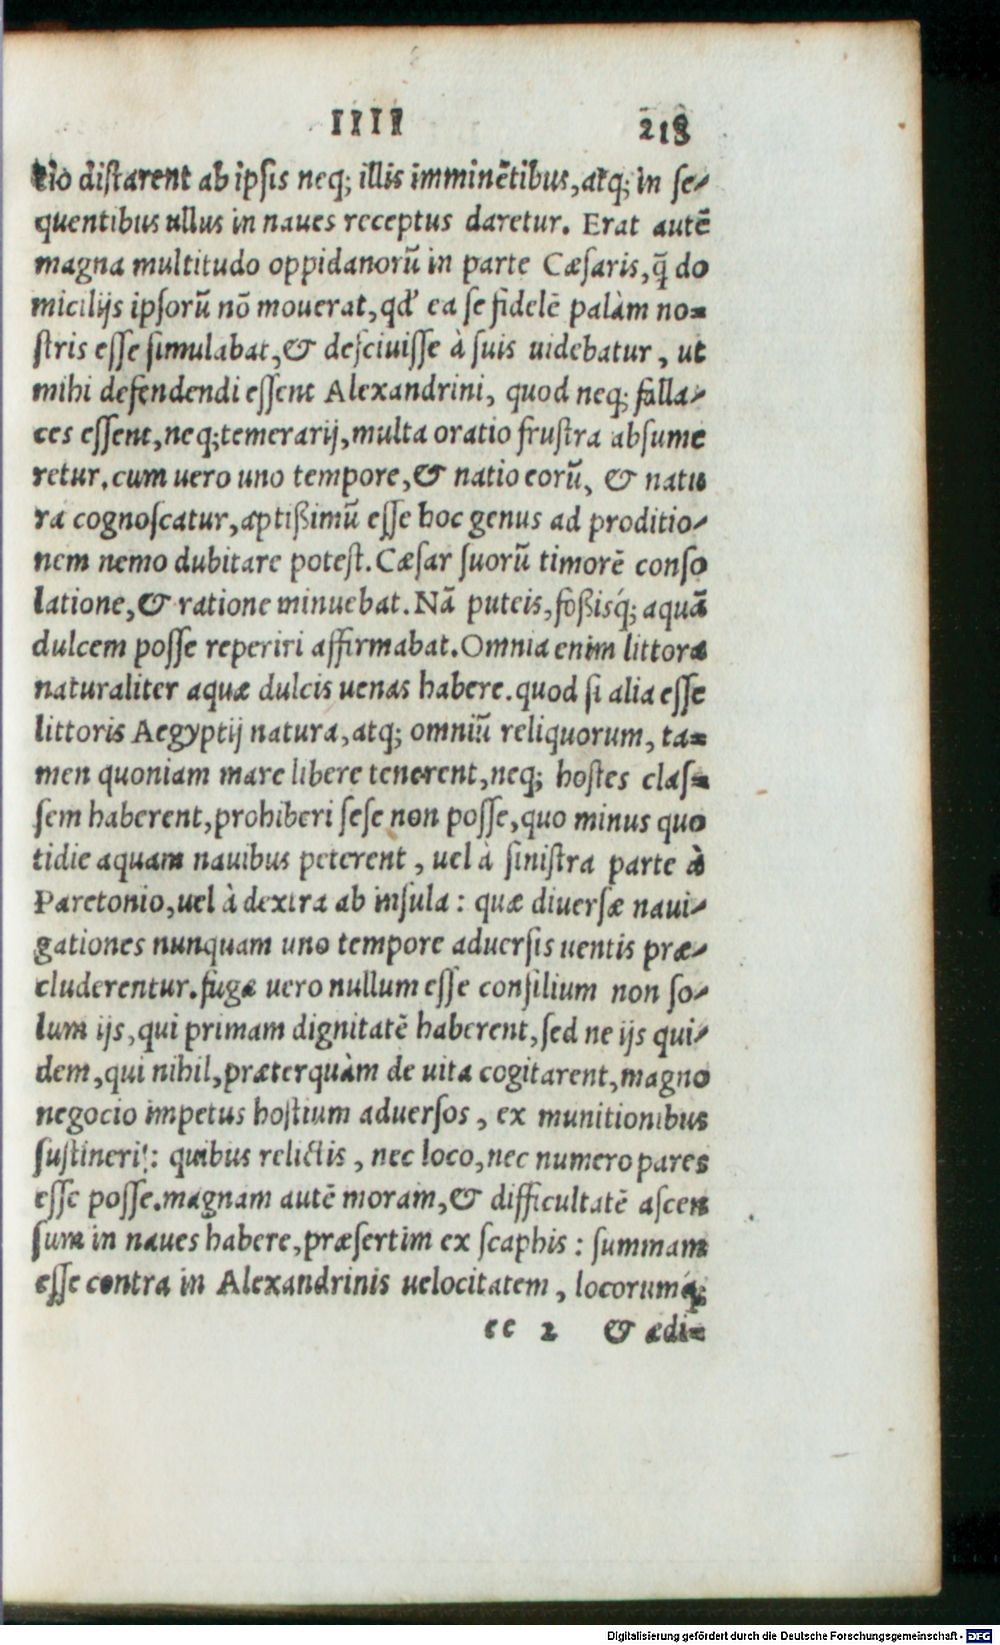 IIII 218
tio distarent ab ipsis neq; illis imminētibus, atq; in se-
quentibus ullus in naues receptus daretur. Erat autē
magna multitudo oppidanorū in parte Cæsaris, q̄ do
micilijs ipsorū nō mouerat, qd' ea se fidelē palàm no-
stris esse simulabat, & desciuisse à suis uidebatur, ut
mihi defendendi essent Alexandrini, quod neq; falla-
ces essent, neq; temerarij, multa oratio frustra absume
retur. cum uero uno tempore, & natio eorū, & natu
ra cognoscatur, aptißimū esse hoc genus ad proditio-
nem nemo dubitare potest. Cæsar suorū timorē conso
latione, & ratione minuebat. Nā puteis, foßisq́; aquā
dulcem posse reperiri affirmabat. Omnia enim littora
naturaliter aquæ dulcis uenas habere. quod si alia esse
littoris Aegyptij natura, atq; omniū reliquorum, ta-
men quoniam mare libere tenerent, neq; hostes clas-
sem haberent, prohiberi sese non posse, quo minus quo
tidie aquam nauibus peterent, uel à sinistra parte à
Paretonio, uel à dextra ab insula: quæ diuersæ naui-
gationes nunquam uno tempore aduersis uentis præ-
cluderentur. fugæ uero nullum esse consilium non so-
lum ijs, qui primam dignitatē haberent, sed ne ijs qui-
dem, qui nihil, præterquàm de uita cogitarent, magno
negocio impetus hostium aduersos, ex munitionibus
sustineri!: quibus relictis, nec loco, nec numero pares
esse posse. magnam autē moram, & difficultatē ascen
sum in naues habere, præsertim ex scaphis: summam
esse contra in Alexandrinis uelocitatem, locorumq́;
ee 2 & ædi-
Digitalisierung gefördert durch die Deutsche Forschungsgemeinschaft - DFG